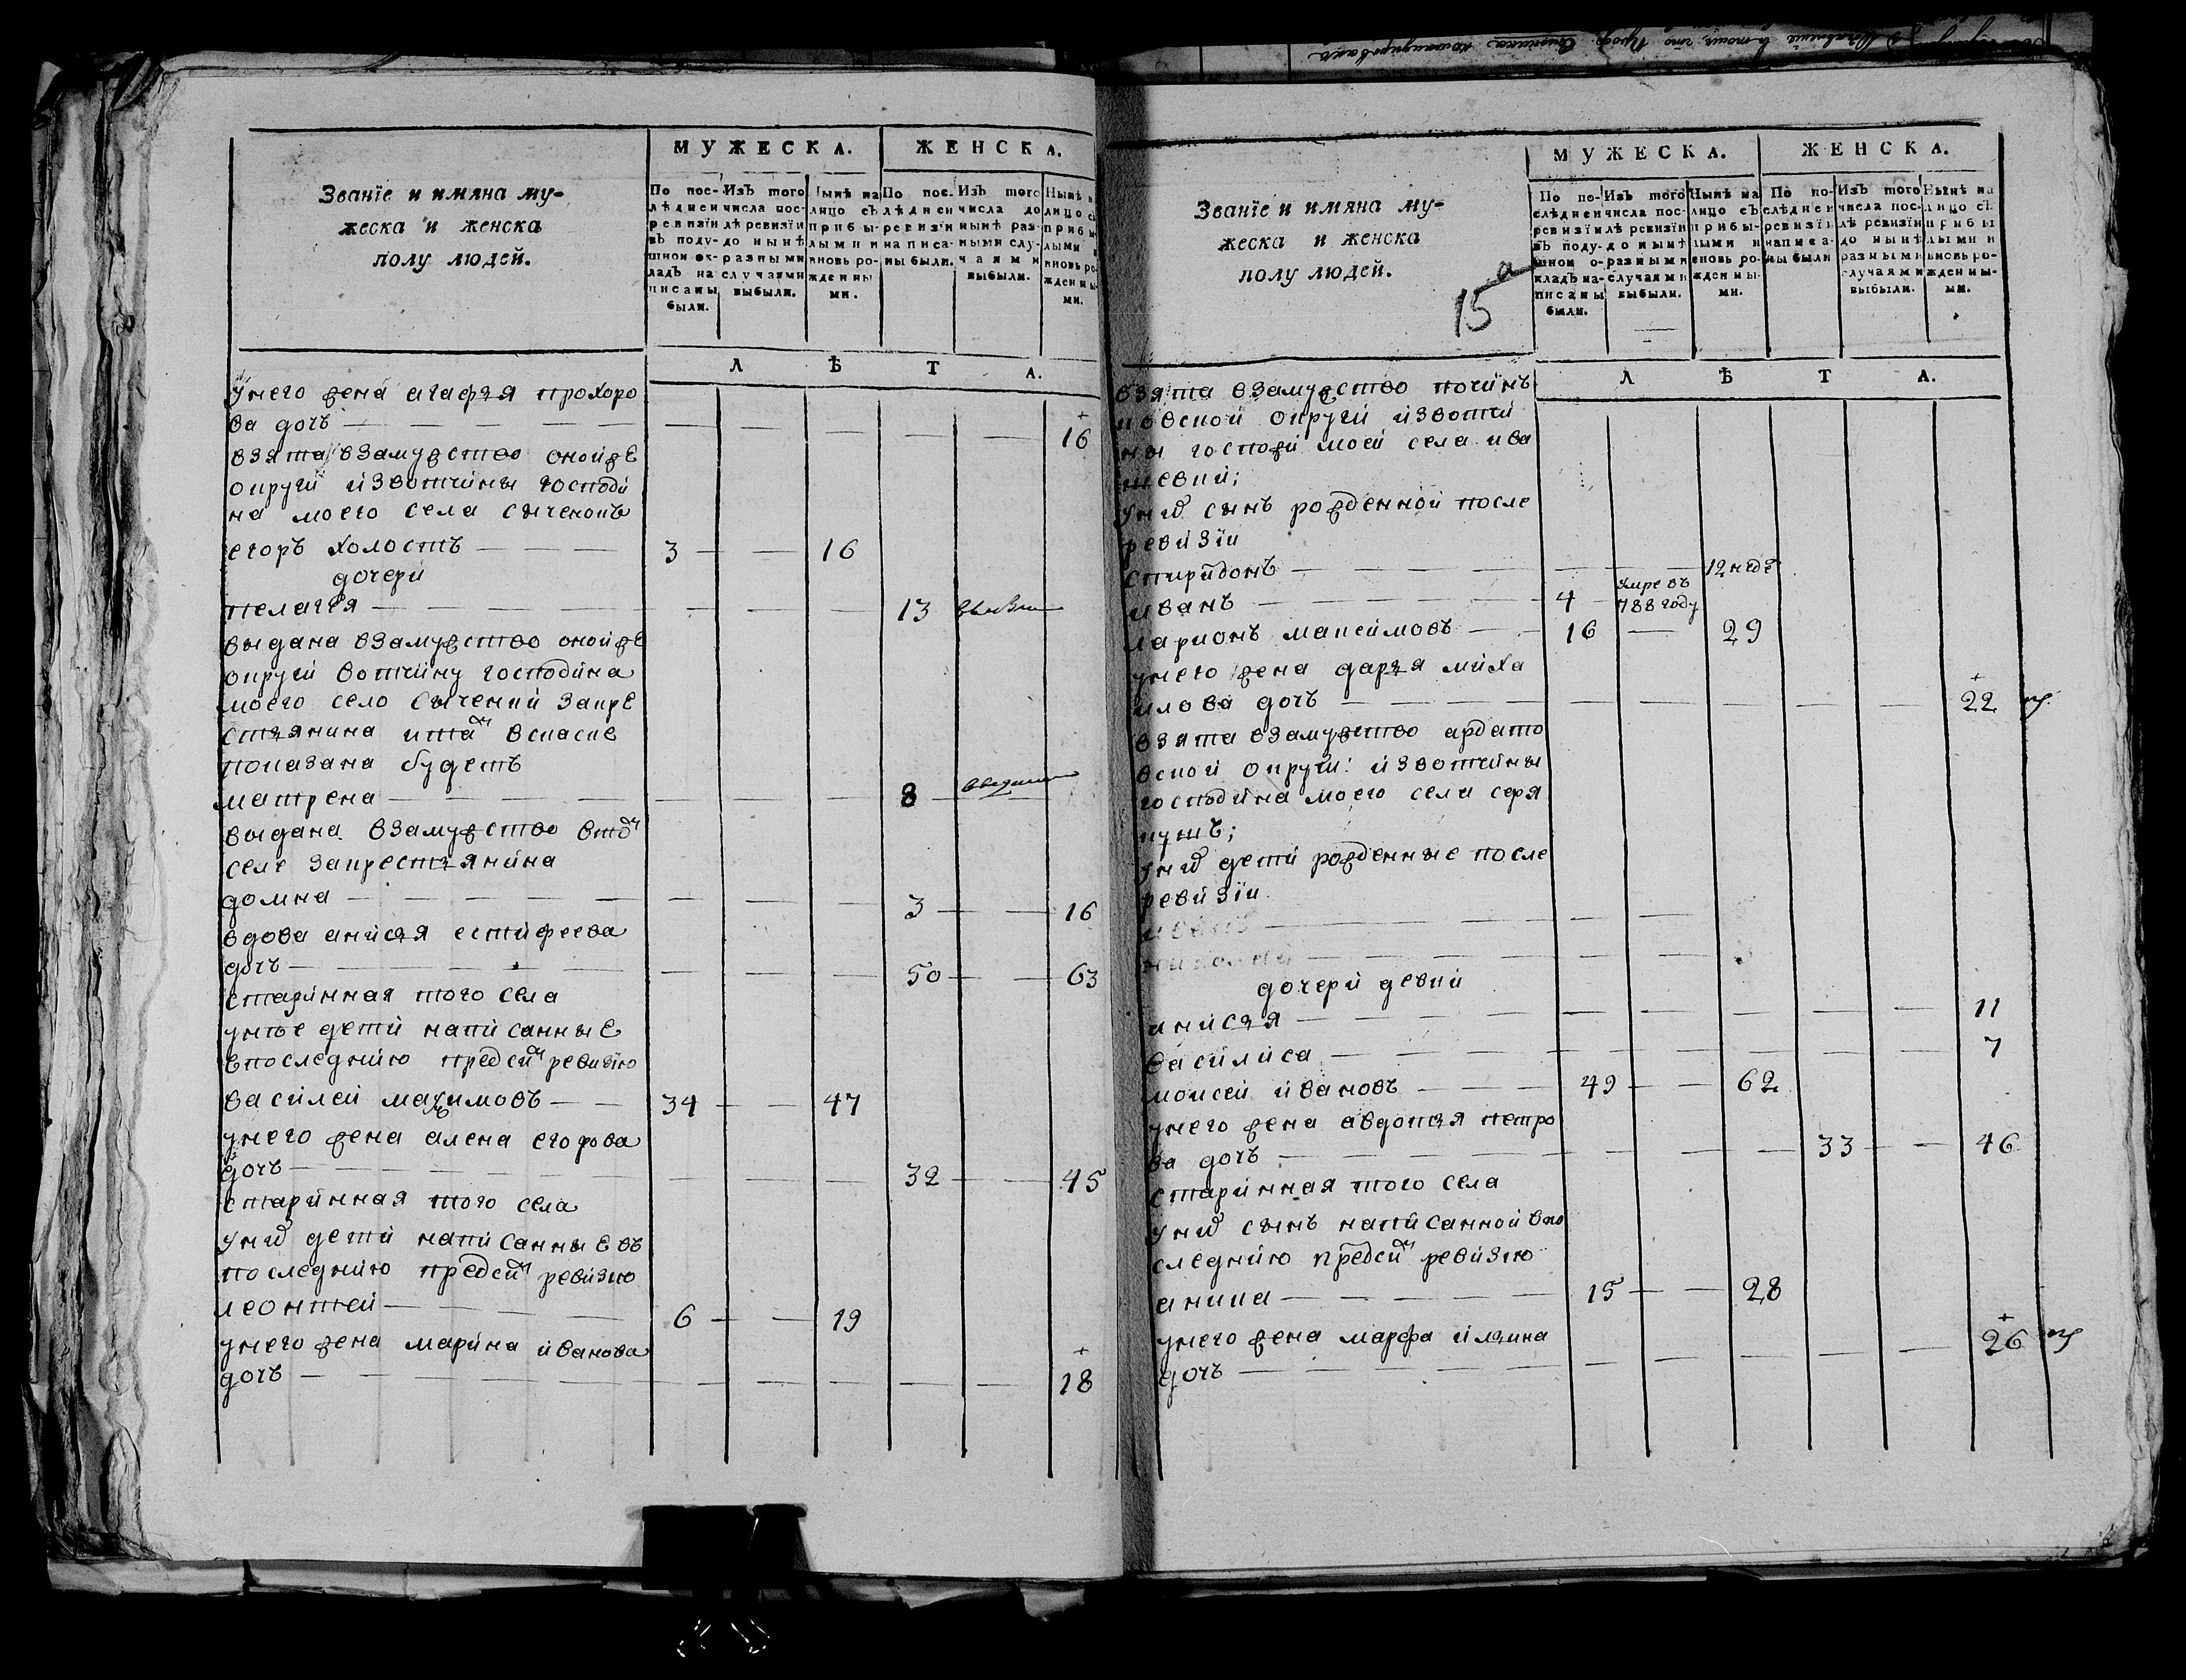 МУЖЕСКА. ЖЕНСКА.
Званїе и имяна му-
жеска и женска
полу людей.
По послѣдней ревизїи въ подушной окладъ написаны были.
Изъ того числа послѣ ревизїи до нынѣ разными случаями выбыли.
Нынѣ на лицо съ прибылыми и вновь рожденными.
По послѣдней ревизїи написаны были.
Изъ того числа до нынѣ разными случаями выбыли.
Нынѣ на лицо съ прибылыми и вновь рожденными.
Л Ѣ Т А.
унего жена агафья прохоро
ва дочь — 16
взята взамужство онойже
округи извотчины господи
на моего села
егоръ холостъ — 3 — 16
дочери
пелагея — 13
выдана взамужство онойже
округи вотчину господина
моего село закре
стьянина
показана будетъ
матрена — 8
выдана взамужство
селе закрестьянина
домна — 3 — 16
вдова анисья естифеева
дочь — 50 — 63
старинная того села
унее дети написанные
впоследнюю предсим ревизїю
василей маѯимовъ — 34 — 47
унего жена алена егорова
дочь — 32 — 45
старинная того села
уних дети написанные въ
последнюю предсим ревизию
леонтей — 6 — 19
унего жена марина иванова
дочь — 18
МУЖЕСКА. ЖЕНСКА.
Званїе и имяна му-
жеска и женска
полу людей.
15а
По послѣдней ревизїи въ подушной окладъ написаны были.
Изъ того числа послѣ ревизїи до нынѣ разными случаями выбыли.
Нынѣ на лицо съ прибылыми и вновь рожденными.
По послѣдней ревизїи написаны были
Изъ того числа послѣ ревизїи до нынѣ разными случаями выбыли.
Нынѣ на лицо съ прибылыми и вновь рожденными.
Л Ѣ Т А.
взята взамужство починъ
ковской округи извотчи
ны моей села ива
шевки;
уних сынъ рожденной после
ревизїи
спиридонъ — 12 неде
иванъ — 4 умре въ 788 году
ларионъ максимовъ — 16 — 29
унего жена дарья миха
илова дочь — 22
взята взамужство ардато
вской округи: извотчины
господина моего села серя
кушъ;
уних дети рожденные после
ревизїи
дочери девки
анисья — 11
василиса — 7
моисей ивановъ — 49 — 62
унего жена авдотья петро
ва дочь — 33 — 46
старинная того села
уних сынъ написанной впо
следнюю предсим ревизию
аника — 15 — 28
унего жена марфа ильина
дочь — 26